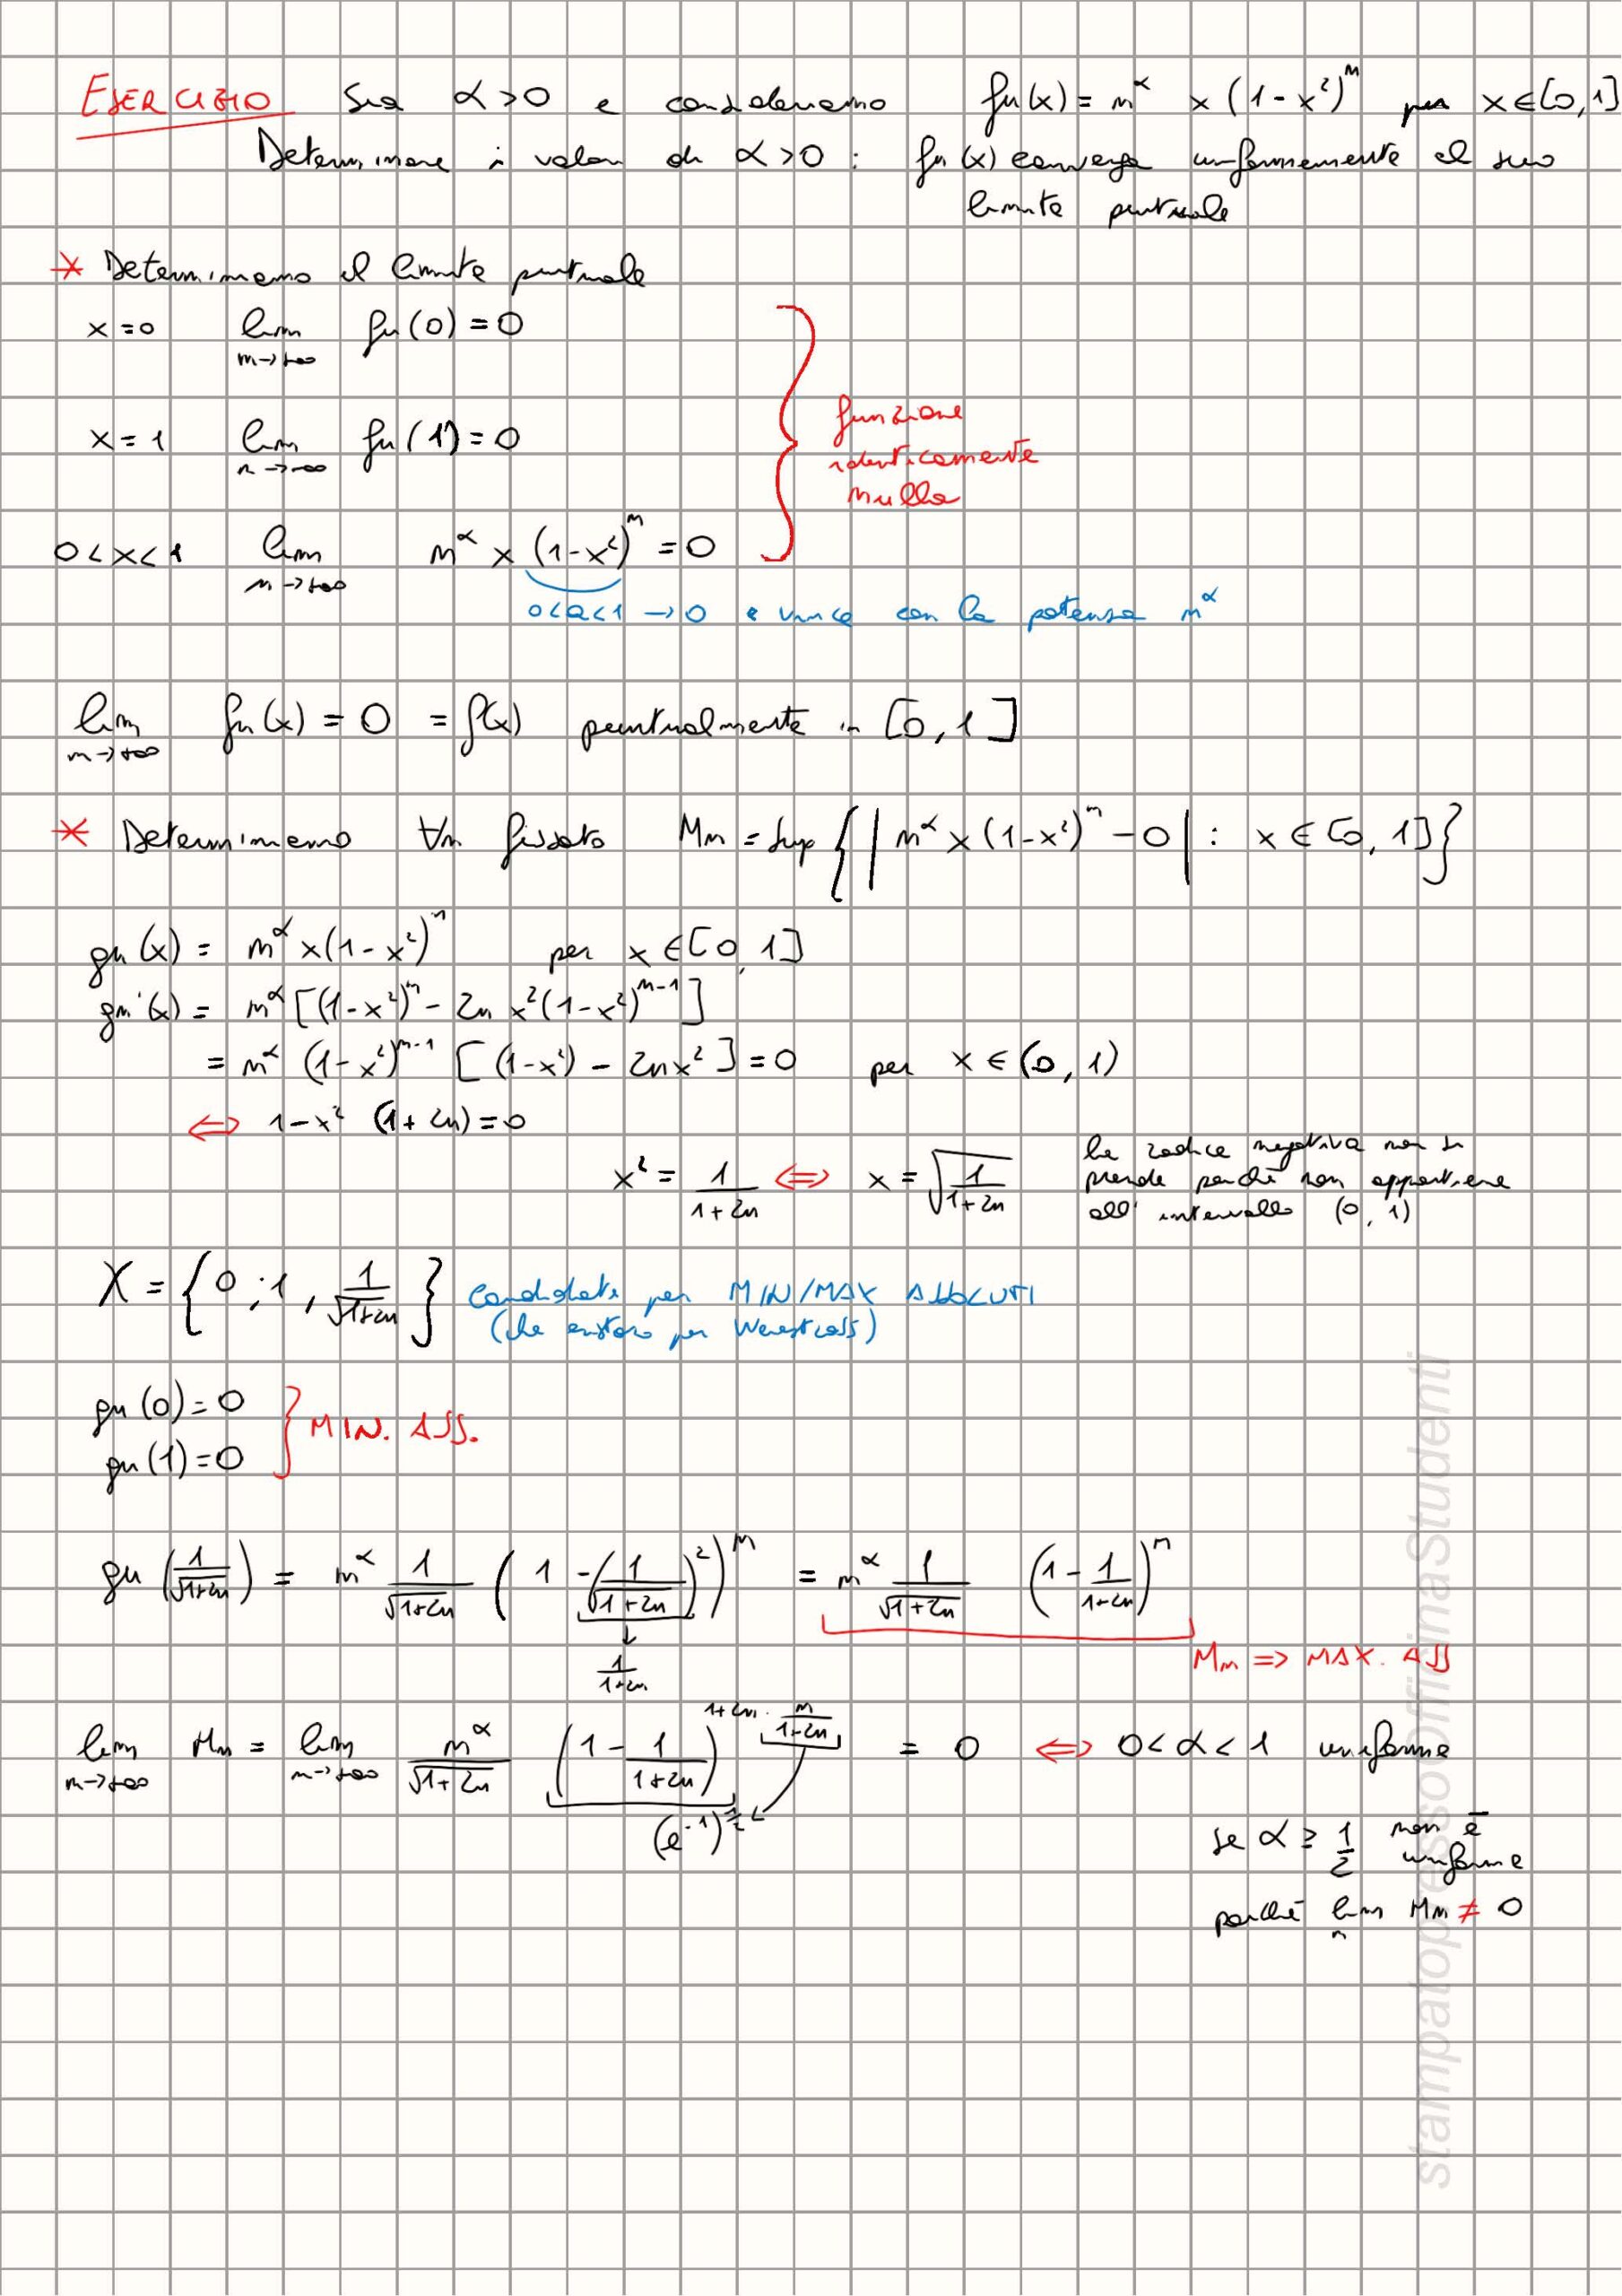 ESERCIZIO Sia α>0 e consideriamo fn(x) = n^α x (1-x²)^n per x∈[0,1]
Determinare i valori di α>0 : fn(x) converge uniformemente al suo
limite puntuale
* Determiniamo il limite puntuale
x=0 lim n→+∞ fn(0)=0
x=1 lim n→+∞ fn(1)=0
funzione
identicamente
nulla
0<x<1 lim n→+∞ n^α x (1-x²)^n = 0
0<a<1 → 0 e vince con la potenza n^α
lim n→+∞ fn(x) = 0 = f(x) puntualmente in [0,1]
* Determiniamo ∀n fissato Mn = sup { | n^α x (1-x²)^n - 0 | : x ∈ [0,1] }
gn(x) = n^α x(1-x²)^n per x∈[0,1]
gn'(x) = n^α [(1-x²)^n - 2n x²(1-x²)^(n-1)]
= n^α (1-x²)^(n-1) [(1-x²) - 2nx²] = 0 per x∈(0,1)
⇔ 1-x² (1+2n)=0
x² = 1/(1+2n) ⇔ x = √(1/(1+2n))
la radice negativa non si
prende perché non appartiene
all'intervallo (0,1)
X = {0 ; 1, 1/√(1+2n)} candidati per MIN/MAX ASSOLUTI
(che esistono per Weierstrass)
gn(0)=0
gn(1)=0
MIN. ASS.
gn(1/√(1+2n)) = n^α 1/√(1+2n) (1-(1/√(1+2n))²)^n = n^α 1/√(1+2n) (1-1/(1+2n))^n
↓
1/(1+2n)
Mn => MAX. ASS
lim n→+∞ Mn = lim n→+∞ n^α/√(1+2n) (1-1/(1+2n))^(1+2n · n/(1+2n)) = 0 ⇔ 0<α<1 uniforme
(e^-1)^(1/2)
se α ≥ 1/2 non è
uniforme
perché lim n Mn ≠ 0
stampatopressoofficinaStudenti